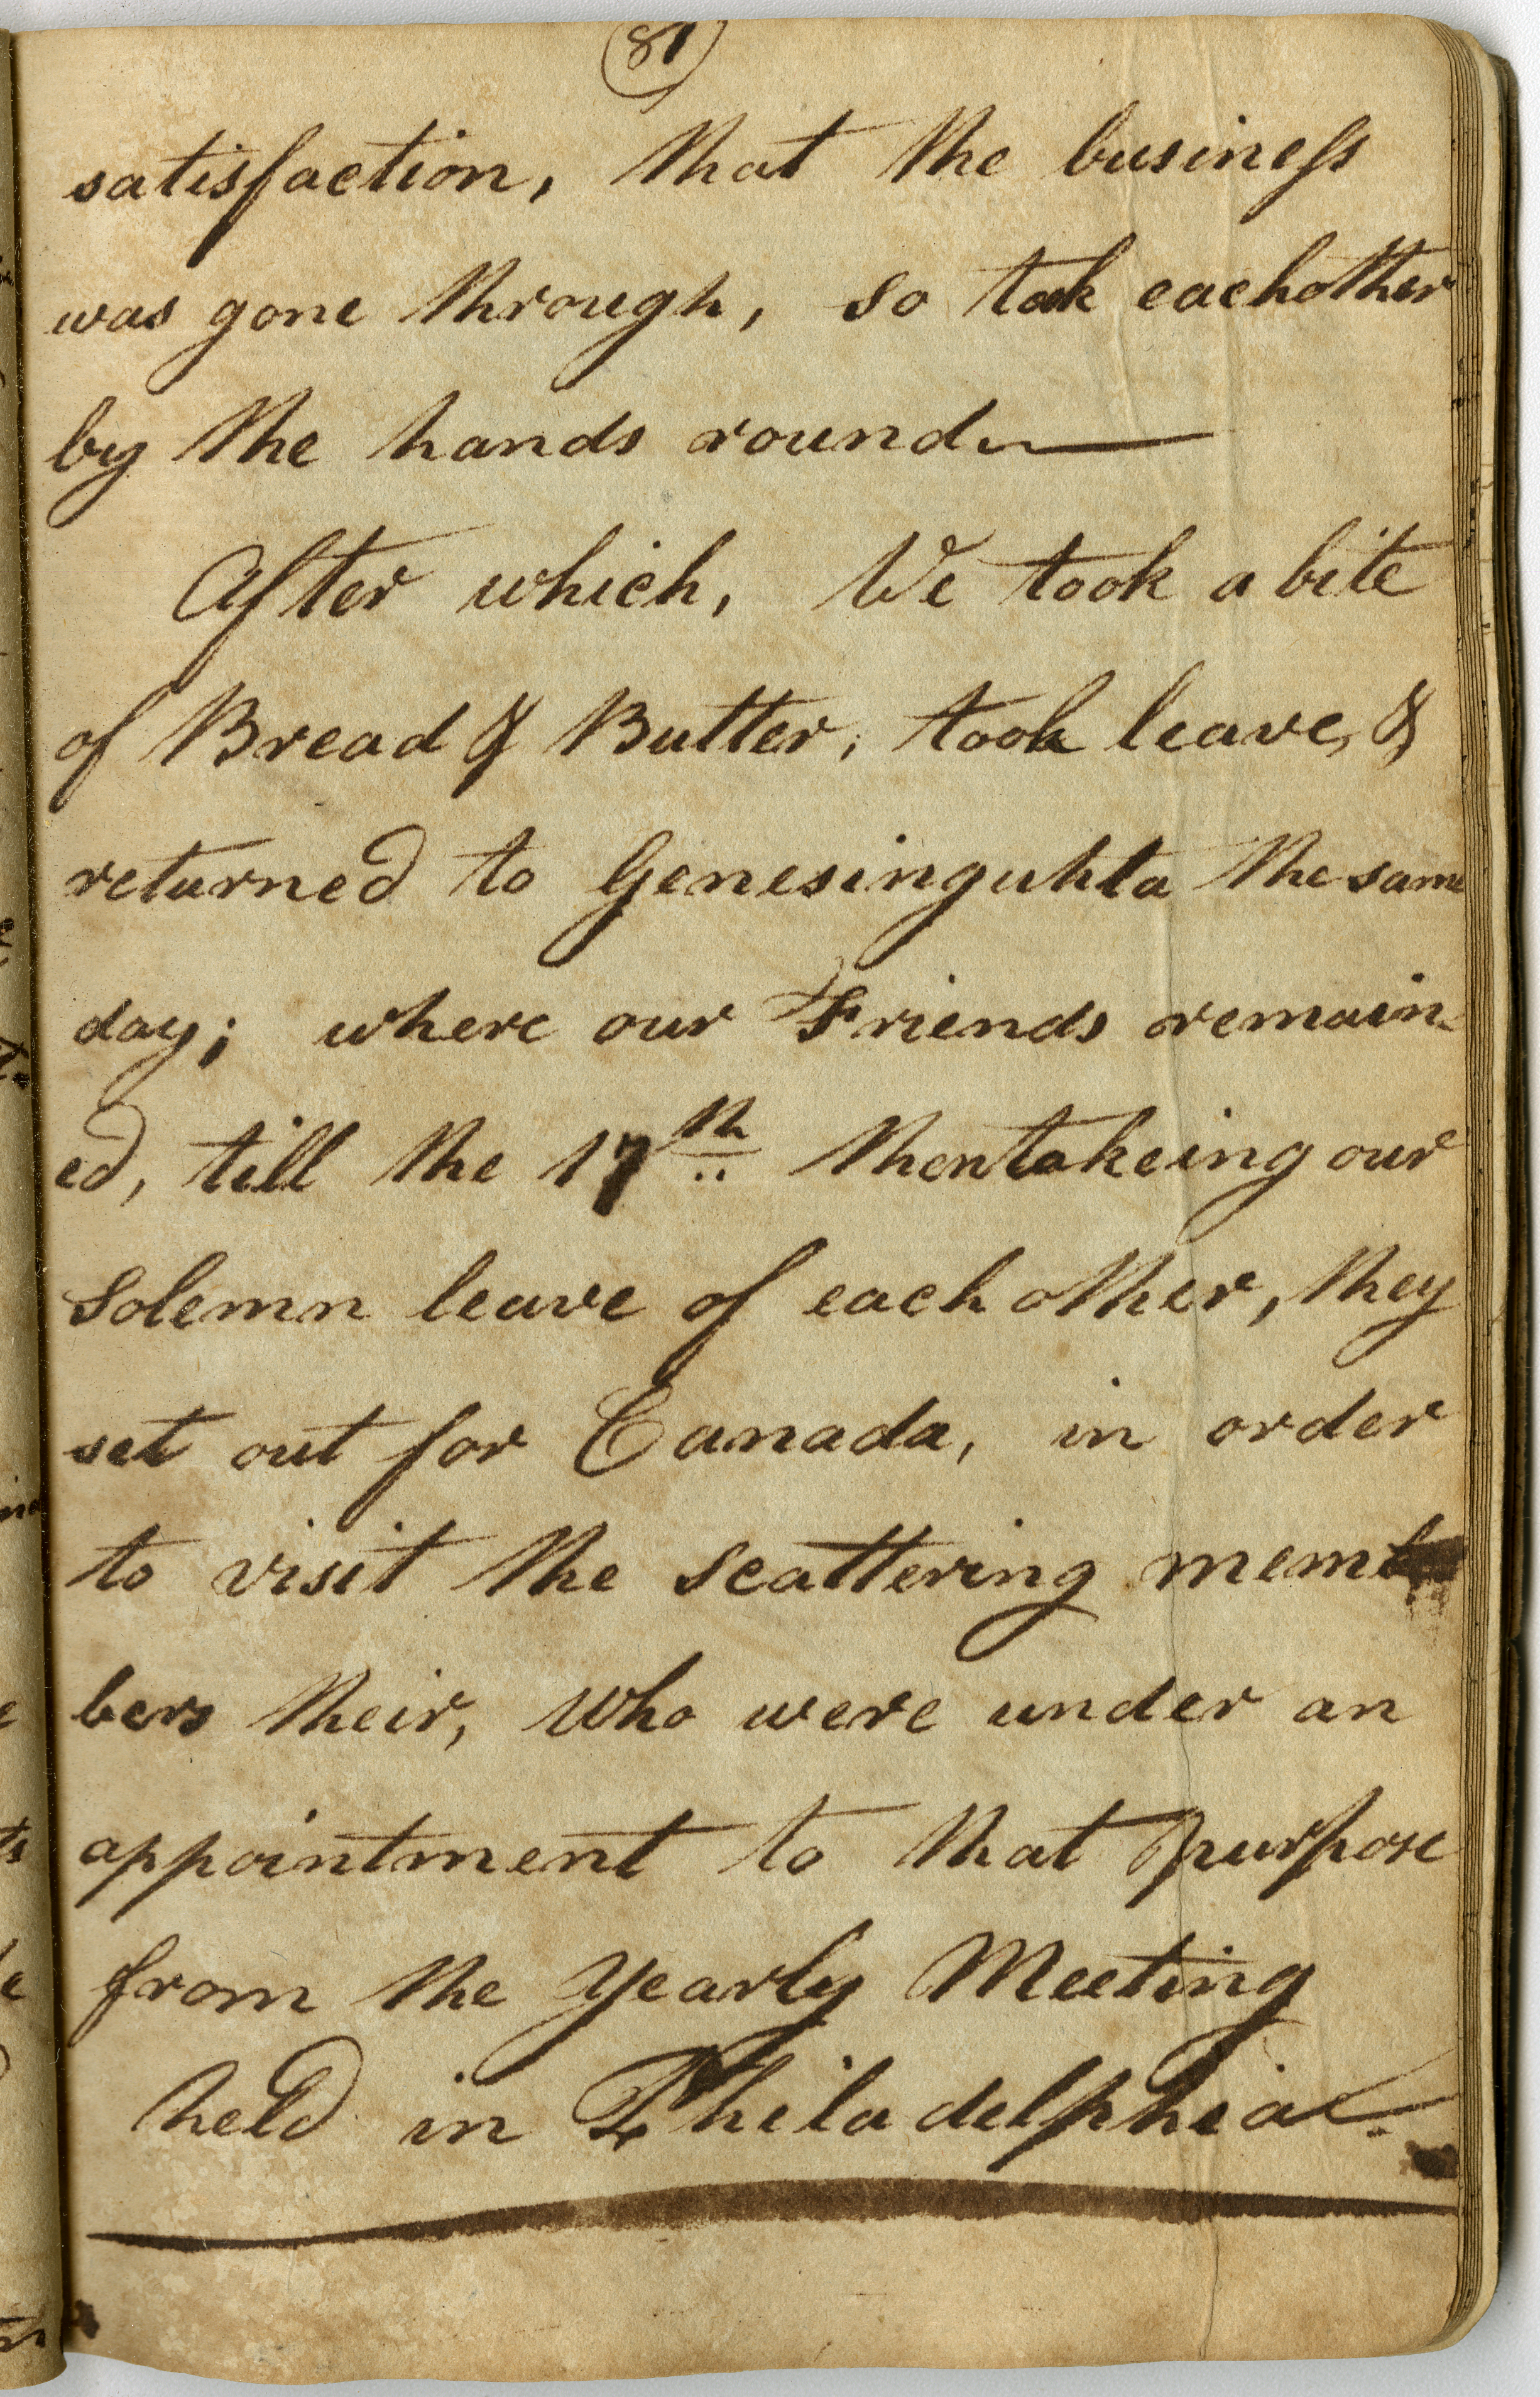 81
satisfaction, that the business
was gone through, so took eachother
by the hands round
After which, We took a bite
of Bread & Butter, took leave, &
returned to Genesinguhta the same
day; where our Friends remain-
ed, till the 17th then takeing our
Solemn leave of each other, they
set out for Canada, in order
to visit the scattering mem
bers their, who were under an
appointment to that purpose
from the Yearly Meeting
held in Philadelphia.